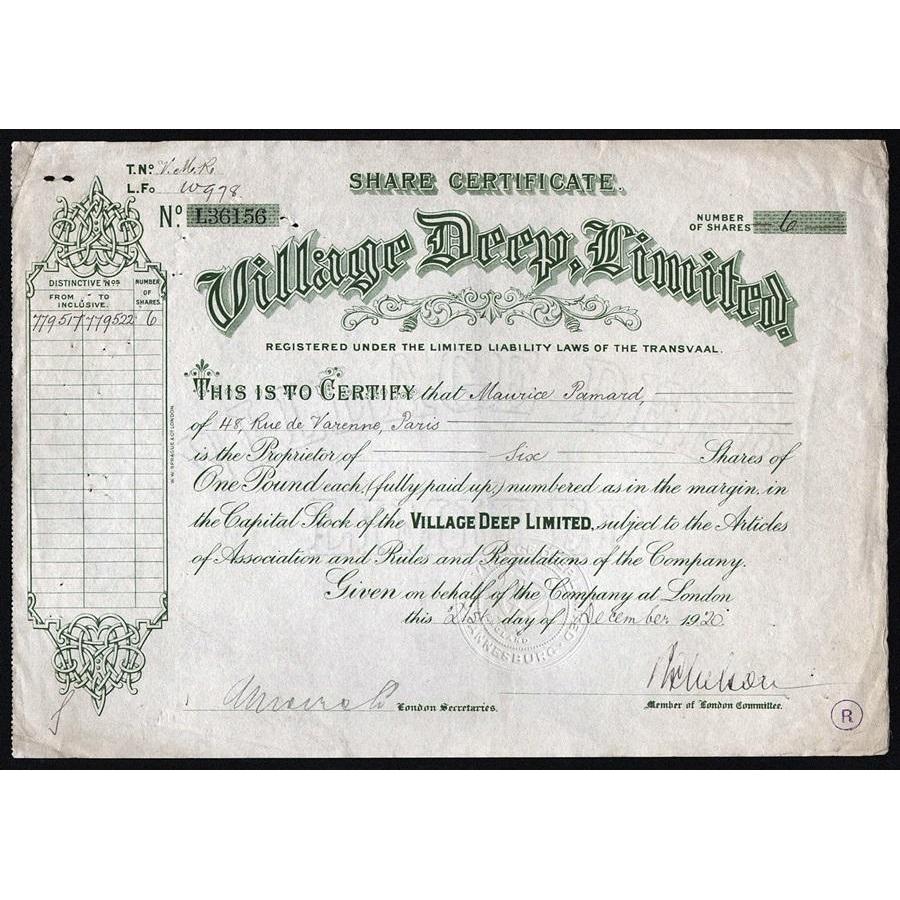 T. Nº V.M.R.
L. Fo W978
SHARE CERTIFICATE.
Nº L36156
NUMBER OF SHARES 6
Village Deep, Limited.
REGISTERED UNDER THE LIMITED LIABILITY LAWS OF THE TRANSVAAL.
DISTINCTIVE Nos
FROM - TO
INCLUSIVE.
NUMBER
OF
SHARES
779517 779522 6
THIS IS TO CERTIFY that Maurice Pamard,
of 48, Rue de Varenne, Paris
is the Proprietor of Six Shares of
One Pound each, (fully paid up,) numbered as in the margin, in
the Capital Stock of the VILLAGE DEEP LIMITED, subject to the Articles
of Association and Rules and Regulations of the Company.
Given on behalf of the Company at London
this 21st day of December 1920
London Secretaries.
Member of London Committee.
R
W.W. SPRAGUE & Co LONDON